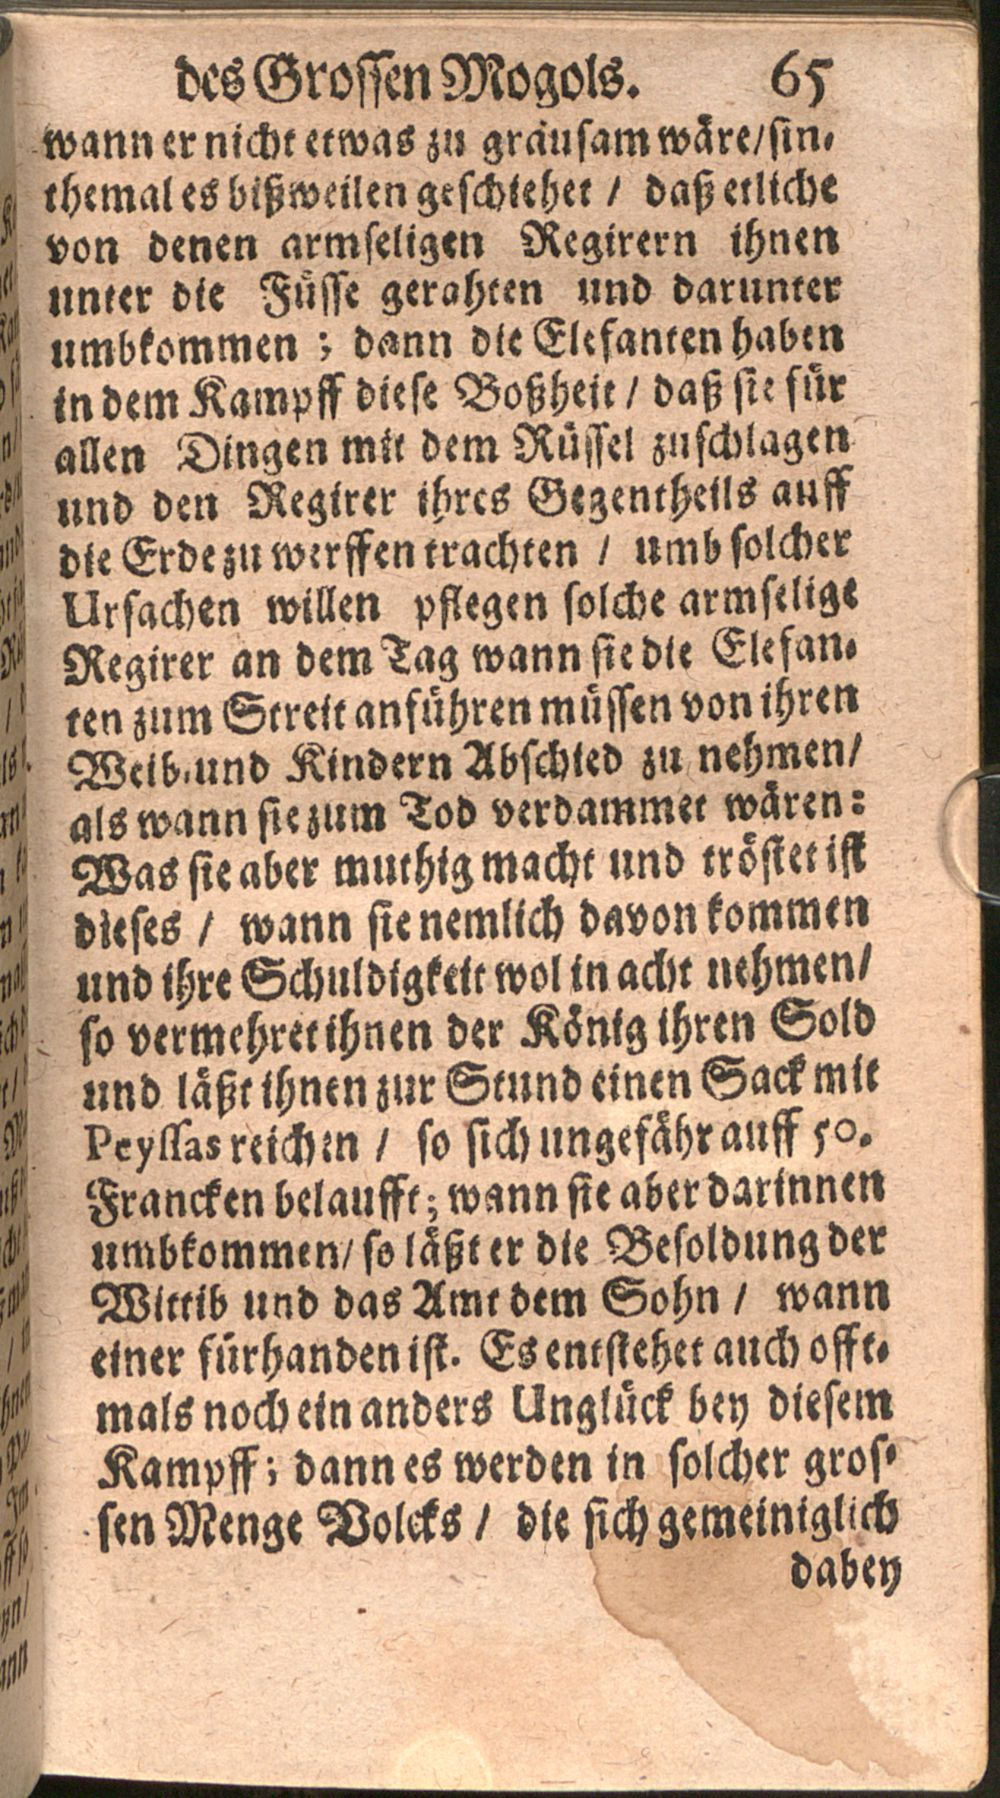 des Grossen Mogols. 65
wann er nicht etwas zu gräusam wäre/sin-
themal es bißweilen geschiehet / daß etliche
von denen armseligen Regirern ihnen
unter die Füsse gerahten und darunter
umbkommen ; dann die Elefanten haben
in dem Kampff diese Boßheit / daß sie für
allen Dingen mit dem Rüssel zuschlagen
und den Regirer ihres Gegentheils auff
die Erde zu werffen trachten / umb solcher
Ursachen willen pflegen solche armselige
Regirer an dem Tag wann sie die Elefan-
ten zum Streit anführen müssen von ihren
Weib-und Kindern Abschied zu nehmen/
als wann sie zum Tod verdammet wären:
Was sie aber muthig macht und tröstet ist
dieses / wann sie nemlich davon kommen
und ihre Schuldigkeit wol in acht nehmen/
so vermehret ihnen der König ihren Sold
und läßt ihnen zur Stund einen Sack mit
Peyssas reichen / so sich ungefähr auff 50.
Francken belaufft; wann sie aber darinnen
umbkommen/ so läßt er die Besoldung der
Wittib und das Amt dem Sohn / wann
einer fürhanden ist. Es entstehet auch offt-
mals noch ein anders Unglück bey diesem
Kampff; dann es werden in solcher gros-
sen Menge Volcks / die sich gemeiniglich
dabey